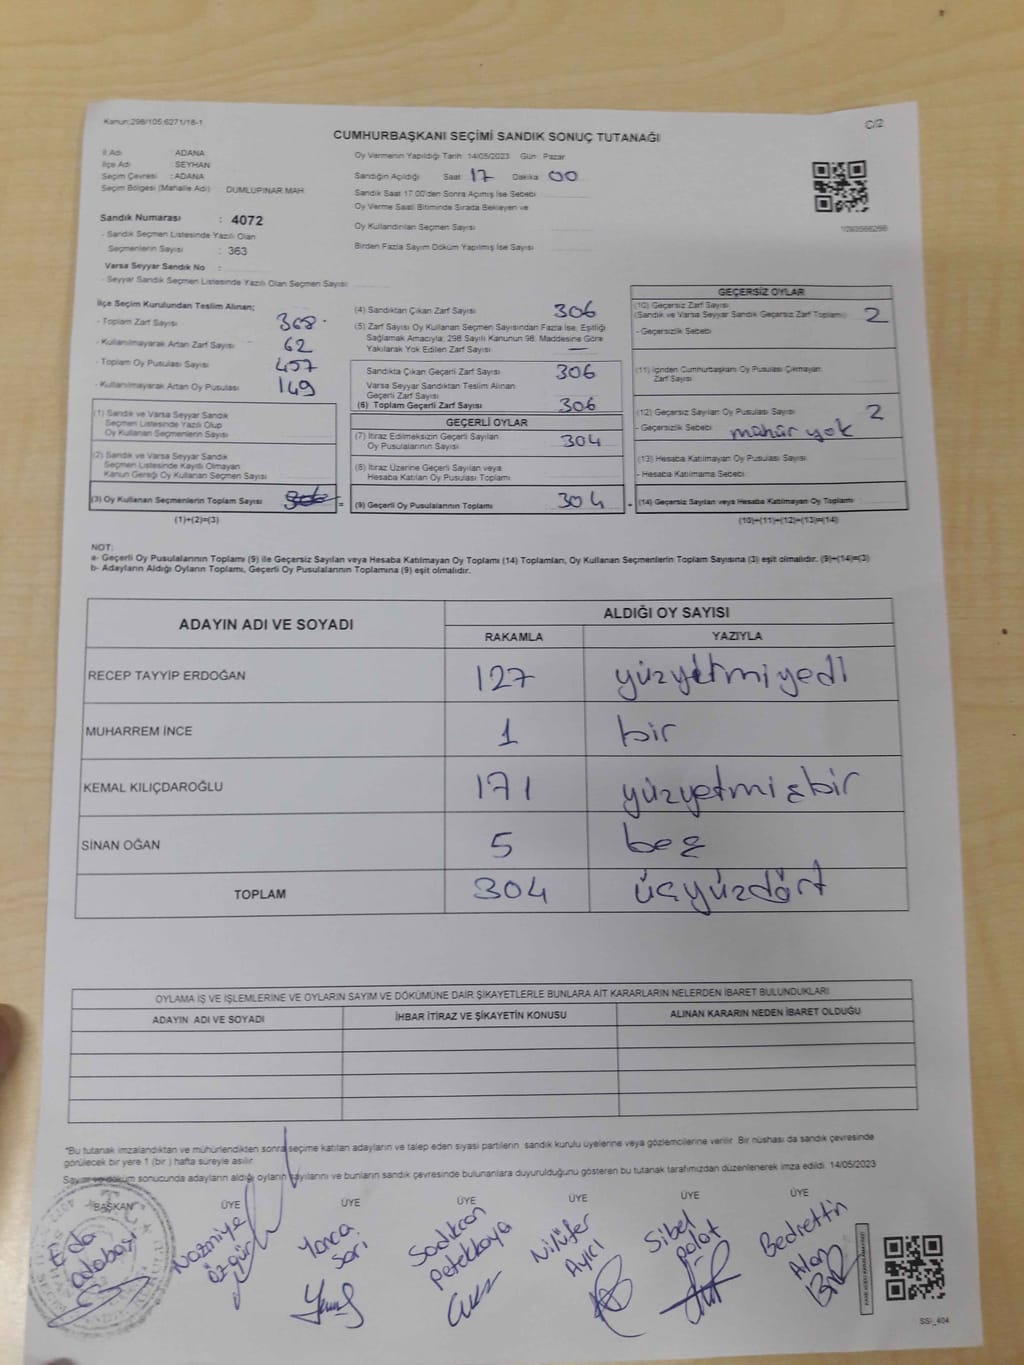 Kanun:298/105;6271/18-1
C/2
CUMHURBAŞKANI SEÇİMİ SANDIK SONUÇ TUTANAĞI
İl Adı : ADANA
İlçe Adı : SEYHAN
Seçim Çevresi : ADANA
Seçim Bölgesi (Mahalle Adı) DUMLUPINAR MAH.
Sandık Numarası : 4072
- Sandık Seçmen Listesinde Yazılı Olan
Seçmenlerin Sayısı : 363
Varsa Seyyar Sandık No :
- Seyyar Sandık Seçmen Listesinde Yazılı Olan Seçmen Sayısı
Oy Vermenin Yapıldığı Tarih: 14/05/2023 Gün: Pazar
Sandığın Açıldığı Saat 17 Dakika 00
Sandık Saat 17:00'den Sonra Açılmış İse Sebebi
Oy Verme Saati Bitiminde Sırada Bekleyen ve
Oy Kullandırılan Seçmen Sayısı
Birden Fazla Sayım Döküm Yapılmış İse Sayısı
İlçe Seçim Kurulundan Teslim Alınan;
- Toplam Zarf Sayısı 368
- Kullanılmayarak Artan Zarf Sayısı 62
- Toplam Oy Pusulası Sayısı 457
- Kullanılmayarak Artan Oy Pusulası 149
(1) Sandık ve Varsa Seyyar Sandık
Seçmen Listesinde Yazılı Olup
Oy Kullanan Seçmenlerin Sayısı
(2) Sandık ve Varsa Seyyar Sandık
Seçmen Listesinde Kaydı Olmayan
Kanun Gereği Oy Kullanan Seçmen Sayısı
(3) Oy Kullanan Seçmenlerin Toplam Sayısı 306 =
(1)+(2)=(3)
(4) Sandıktan Çıkan Zarf Sayısı 306
(5) Zarf Sayısı Oy Kullanan Seçmen Sayısından Fazla İse, Eşitliği
Sağlamak Amacıyla; 298 Sayılı Kanunun 98. Maddesine Göre
Yakılarak Yok Edilen Zarf Sayısı —
Sandıkta Çıkan Geçerli Zarf Sayısı 306
Varsa Seyyar Sandıktan Teslim Alınan
Geçerli Zarf Sayısı
(6) Toplam Geçerli Zarf Sayısı 306
GEÇERLİ OYLAR
(7) İtiraz Edilmeksizin Geçerli Sayılan
Oy Pusulalarının Sayısı 304
(8) İtiraz Üzerine Geçerli Sayılan veya
Hesaba Katılan Oy Pusulası Toplamı
(9) Geçerli Oy Pusulalarının Toplamı 304 +
GEÇERSİZ OYLAR
(10) Geçersiz Zarf Sayısı
(Sandık ve Varsa Seyyar Sandık Geçersiz Zarf Toplamı) 2
- Geçersizlik Sebebi
(11) İçinden Cumhurbaşkanı Oy Pusulası Çıkmayan
Zarf Sayısı
(12) Geçersiz Sayılan Oy Pusulası Sayısı 2
- Geçersizlik Sebebi mühür yok
(13) Hesaba Katılmayan Oy Pusulası Sayısı
- Hesaba Katılmama Sebebi
(14) Geçersiz Sayılan veya Hesaba Katılmayan Oy Toplamı
(10)+(11)+(12)+(13)=(14)
NOT:
a- Geçerli Oy Pusulalarının Toplamı (9) ile Geçersiz Sayılan veya Hesaba Katılmayan Oy Toplamı (14) Toplamları, Oy Kullanan Seçmenlerin Toplam Sayısına (3) eşit olmalıdır. (9)+(14)=(3)
b- Adayların Aldığı Oyların Toplamı, Geçerli Oy Pusulalarının Toplamına (9) eşit olmalıdır.
ADAYIN ADI VE SOYADI ALDIĞI OY SAYISI
RAKAMLA YAZIYLA
RECEP TAYYİP ERDOĞAN 127 yüzyetmiyedi
MUHARREM İNCE 1 bir
KEMAL KILIÇDAROĞLU 171 yüzyetmişbir
SİNAN OĞAN 5 beş
TOPLAM 304 üçyüzdört
OYLAMA İŞ VE İŞLEMLERİNE VE OYLARIN SAYIM VE DÖKÜMÜNE DAİR ŞİKAYETLERLE BUNLARA AİT KARARLARIN NELERDEN İBARET BULUNDUKLARI
ADAYIN ADI VE SOYADI İHBAR İTİRAZ VE ŞİKAYETİN KONUSU ALINAN KARARIN NEDEN İBARET OLDUĞU
*Bu tutanak imzalandıktan ve mühürlendikten sonra seçime katılan adayların ve talep eden siyasi partilerin sandık kurulu üyelerine veya gözlemcilerine verilir. Bir nüshası da sandık çevresinde
görülecek bir yere 1 (bir ) hafta süreyle asılır.
Sayım ve döküm sonucunda adayların aldığı oyların sayılarını ve bunların sandık çevresinde bulunanlara duyurulduğunu gösteren bu tutanak tarafımızdan düzenlenerek imza edildi. 14/05/2023
BAŞKAN ÜYE ÜYE ÜYE ÜYE ÜYE ÜYE
Eda
Nazmiye özgür
Yonca Sari
Sadıkcan Petekkaya
Nilüfer Ayıcı
Sibel polat
Bedrettin Alan
SSİ_404